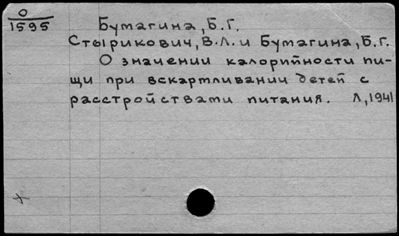 О
1595
Бумагина, Б.Г.
Стырикович, В.Л. и Бумагина, Б.Г.
О значении калорийности пи-
щи при вскармливании детей с
расстройствами питания. Л, 1941